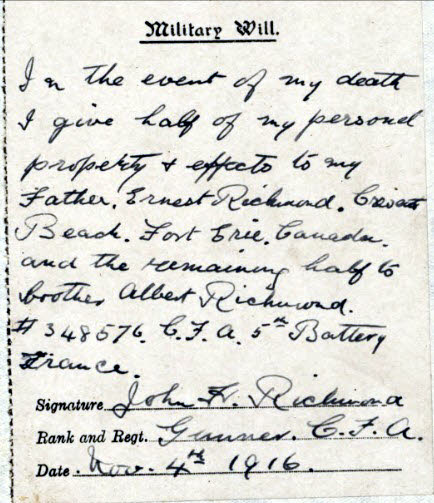 Military Will.
In the event of my death
I give half of my personal
property & effects to my
Father. Ernest Richmond. Crescent
Beach. Fort Erie. Canada.
and the remaining half to
brother Albert Richmond.
# 348576. C.F.A. 5th Battery
France.
Signature John H. Richmond
Rank and Regt. Gunner. C.F.A.
Date Nov. 4th 1916.